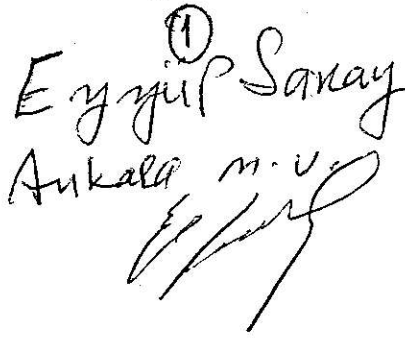 1
Eyyüp Sanay
Ankara m.v.